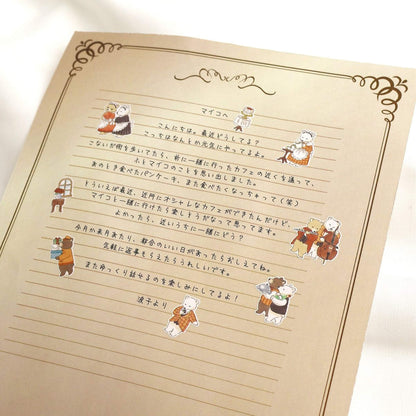 マイコへ
こんにちは。最近どうしてる？
こっちはなんとか元気にやってるよ。
こないだ街を歩いてたら、前に一緒に行ったカフェの近くを通って、
ふとマイコのことを思い出しました。
あのとき食べたパンケーキ、また食べたくなっちゃって(笑)
そういえば最近、近所にオシャレなカフェができたんだけど、
マイコと一緒に行けたら楽しそうだなって思ってます。
よかったら、近いうちに一緒にどう？
今月か来月あたり、都合のいい日があったらおしえてね。
気軽に返事もらえたらうれしいです。
またゆっくり話せるのを楽しみにしてるよ！
涼子より